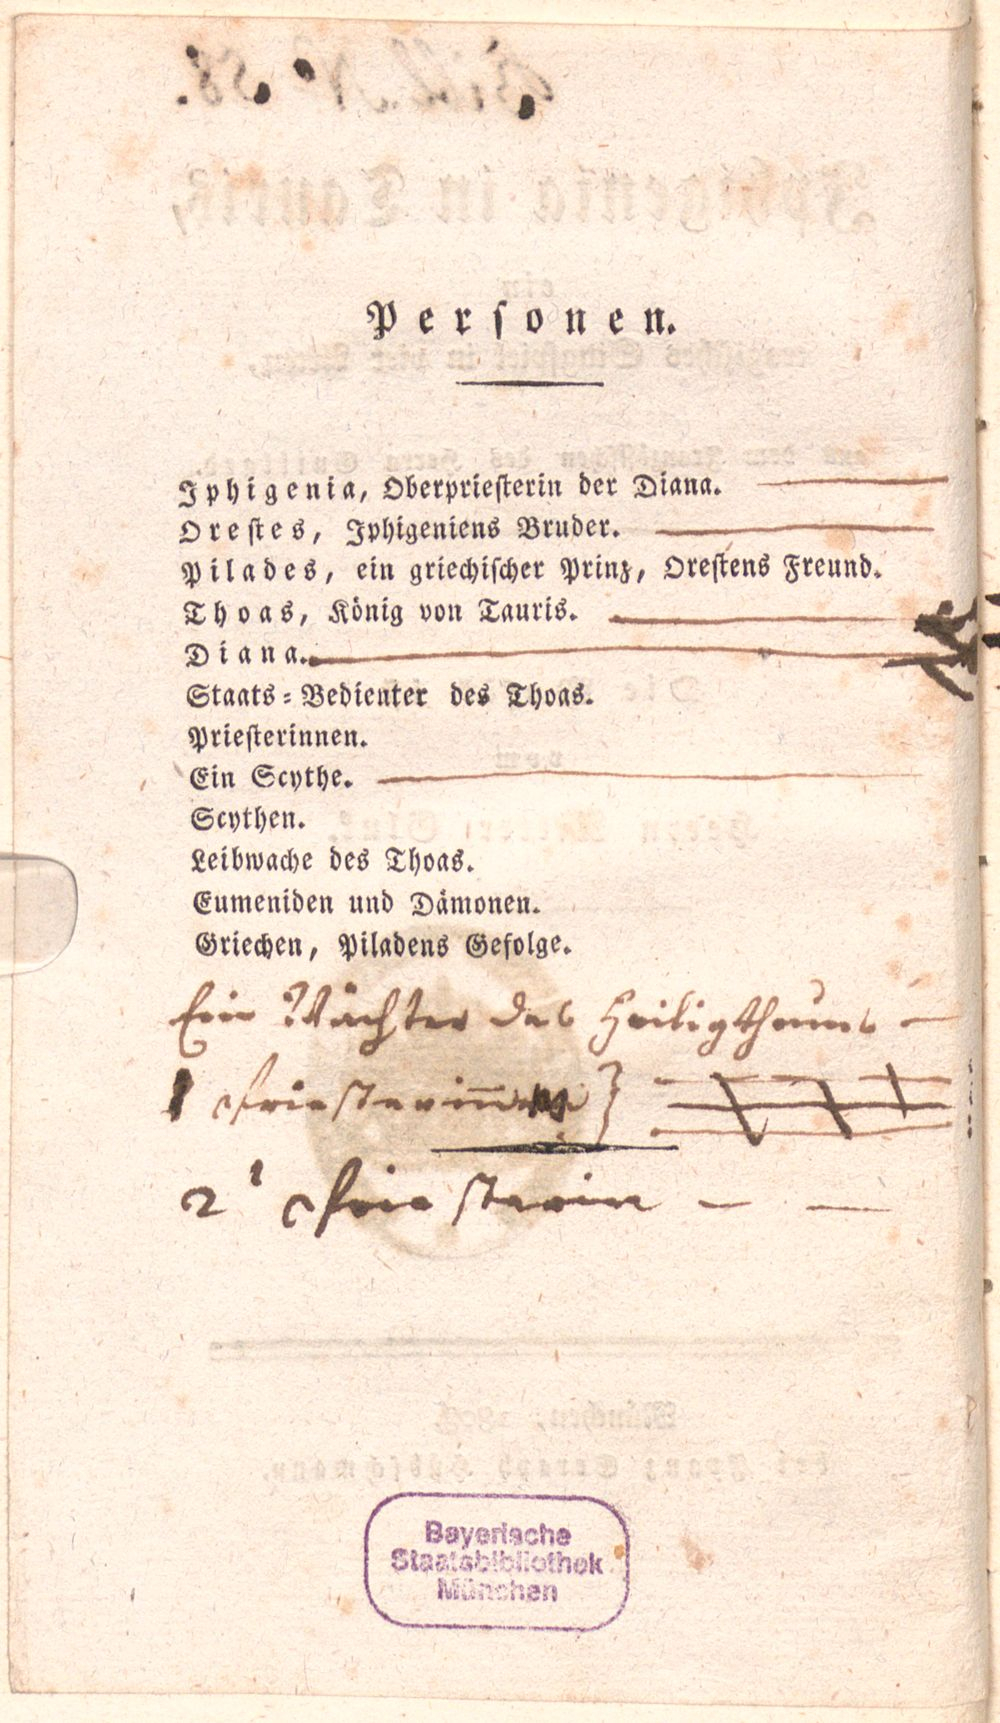 Personen.
Iphigenia, Oberpriesterin der Diana.
Orestes, Iphigeniens Bruder.
Pilades, ein griechischer Prinz, Orestens Freund.
Thoas, König von Tauris.
Diana.
Staats-Bedienter des Thoas.
Priesterinnen.
Ein Scythe.
Scythen.
Leibwache des Thoas.
Eumeniden und Dämonen.
Griechen, Piladens Gefolge.
Ein Wächter des Heiligthums —
1 Priesterin̄ }
2 Priesterin — —
Bayerische
Staatsbibliothek
München